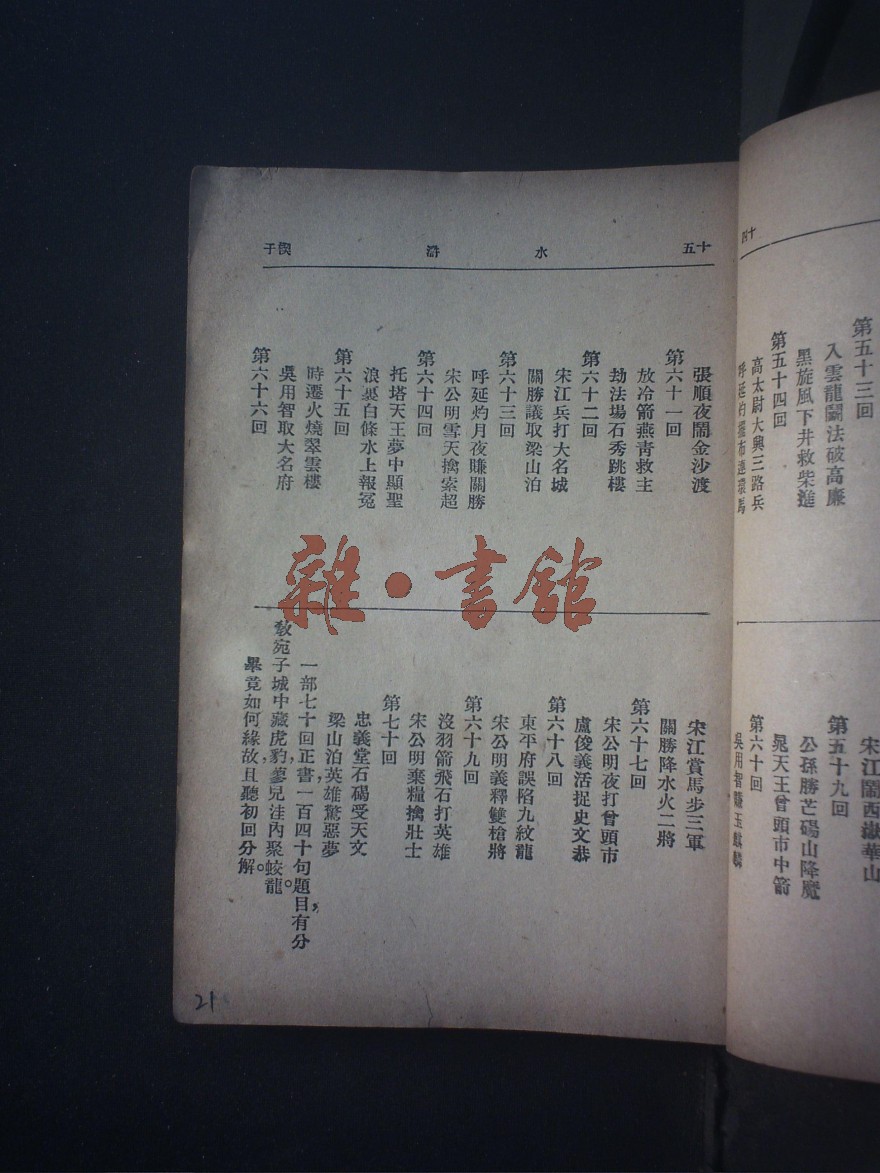 十四
第五十三回
入雲龍鬭法破高廉
黑旋風下井救柴進
第五十四回
高太尉大興三路兵
呼延灼擺布連環馬
宋江鬧西嶽華山
第五十九回
公孫勝芒碭山降魔
晁天王曾頭市中箭
第六十回
吳用智賺玉麒麟
十五
水
滸
楔子
張順夜鬧金沙渡
第六十一回
放冷箭燕青救主
劫法場石秀跳樓
第六十二回
宋江兵打大名城
關勝議取梁山泊
第六十三回
呼延灼月夜賺關勝
宋公明雪天擒索超
第六十四回
托塔天王夢中顯聖
浪裏白條水上報冤
第六十五回
時遷火燒翠雲樓
吳用智取大名府
第六十六回
宋江賞馬步三軍
關勝降水火二將
第六十七回
宋公明夜打曾頭市
盧俊義活捉史文恭
第六十八回
東平府誤陷九紋龍
宋公明義釋雙槍將
第六十九回
沒羽箭飛石打英雄
宋公明棄糧擒壯士
第七十回
忠義堂石碣受天文
梁山泊英雄驚惡夢
一部七十回正書，一百四十句題目有分
敎宛子城中藏虎豹，蓼兒洼內聚蛟龍。
畢竟如何緣故，且聽初回分解。
雜·書館
21